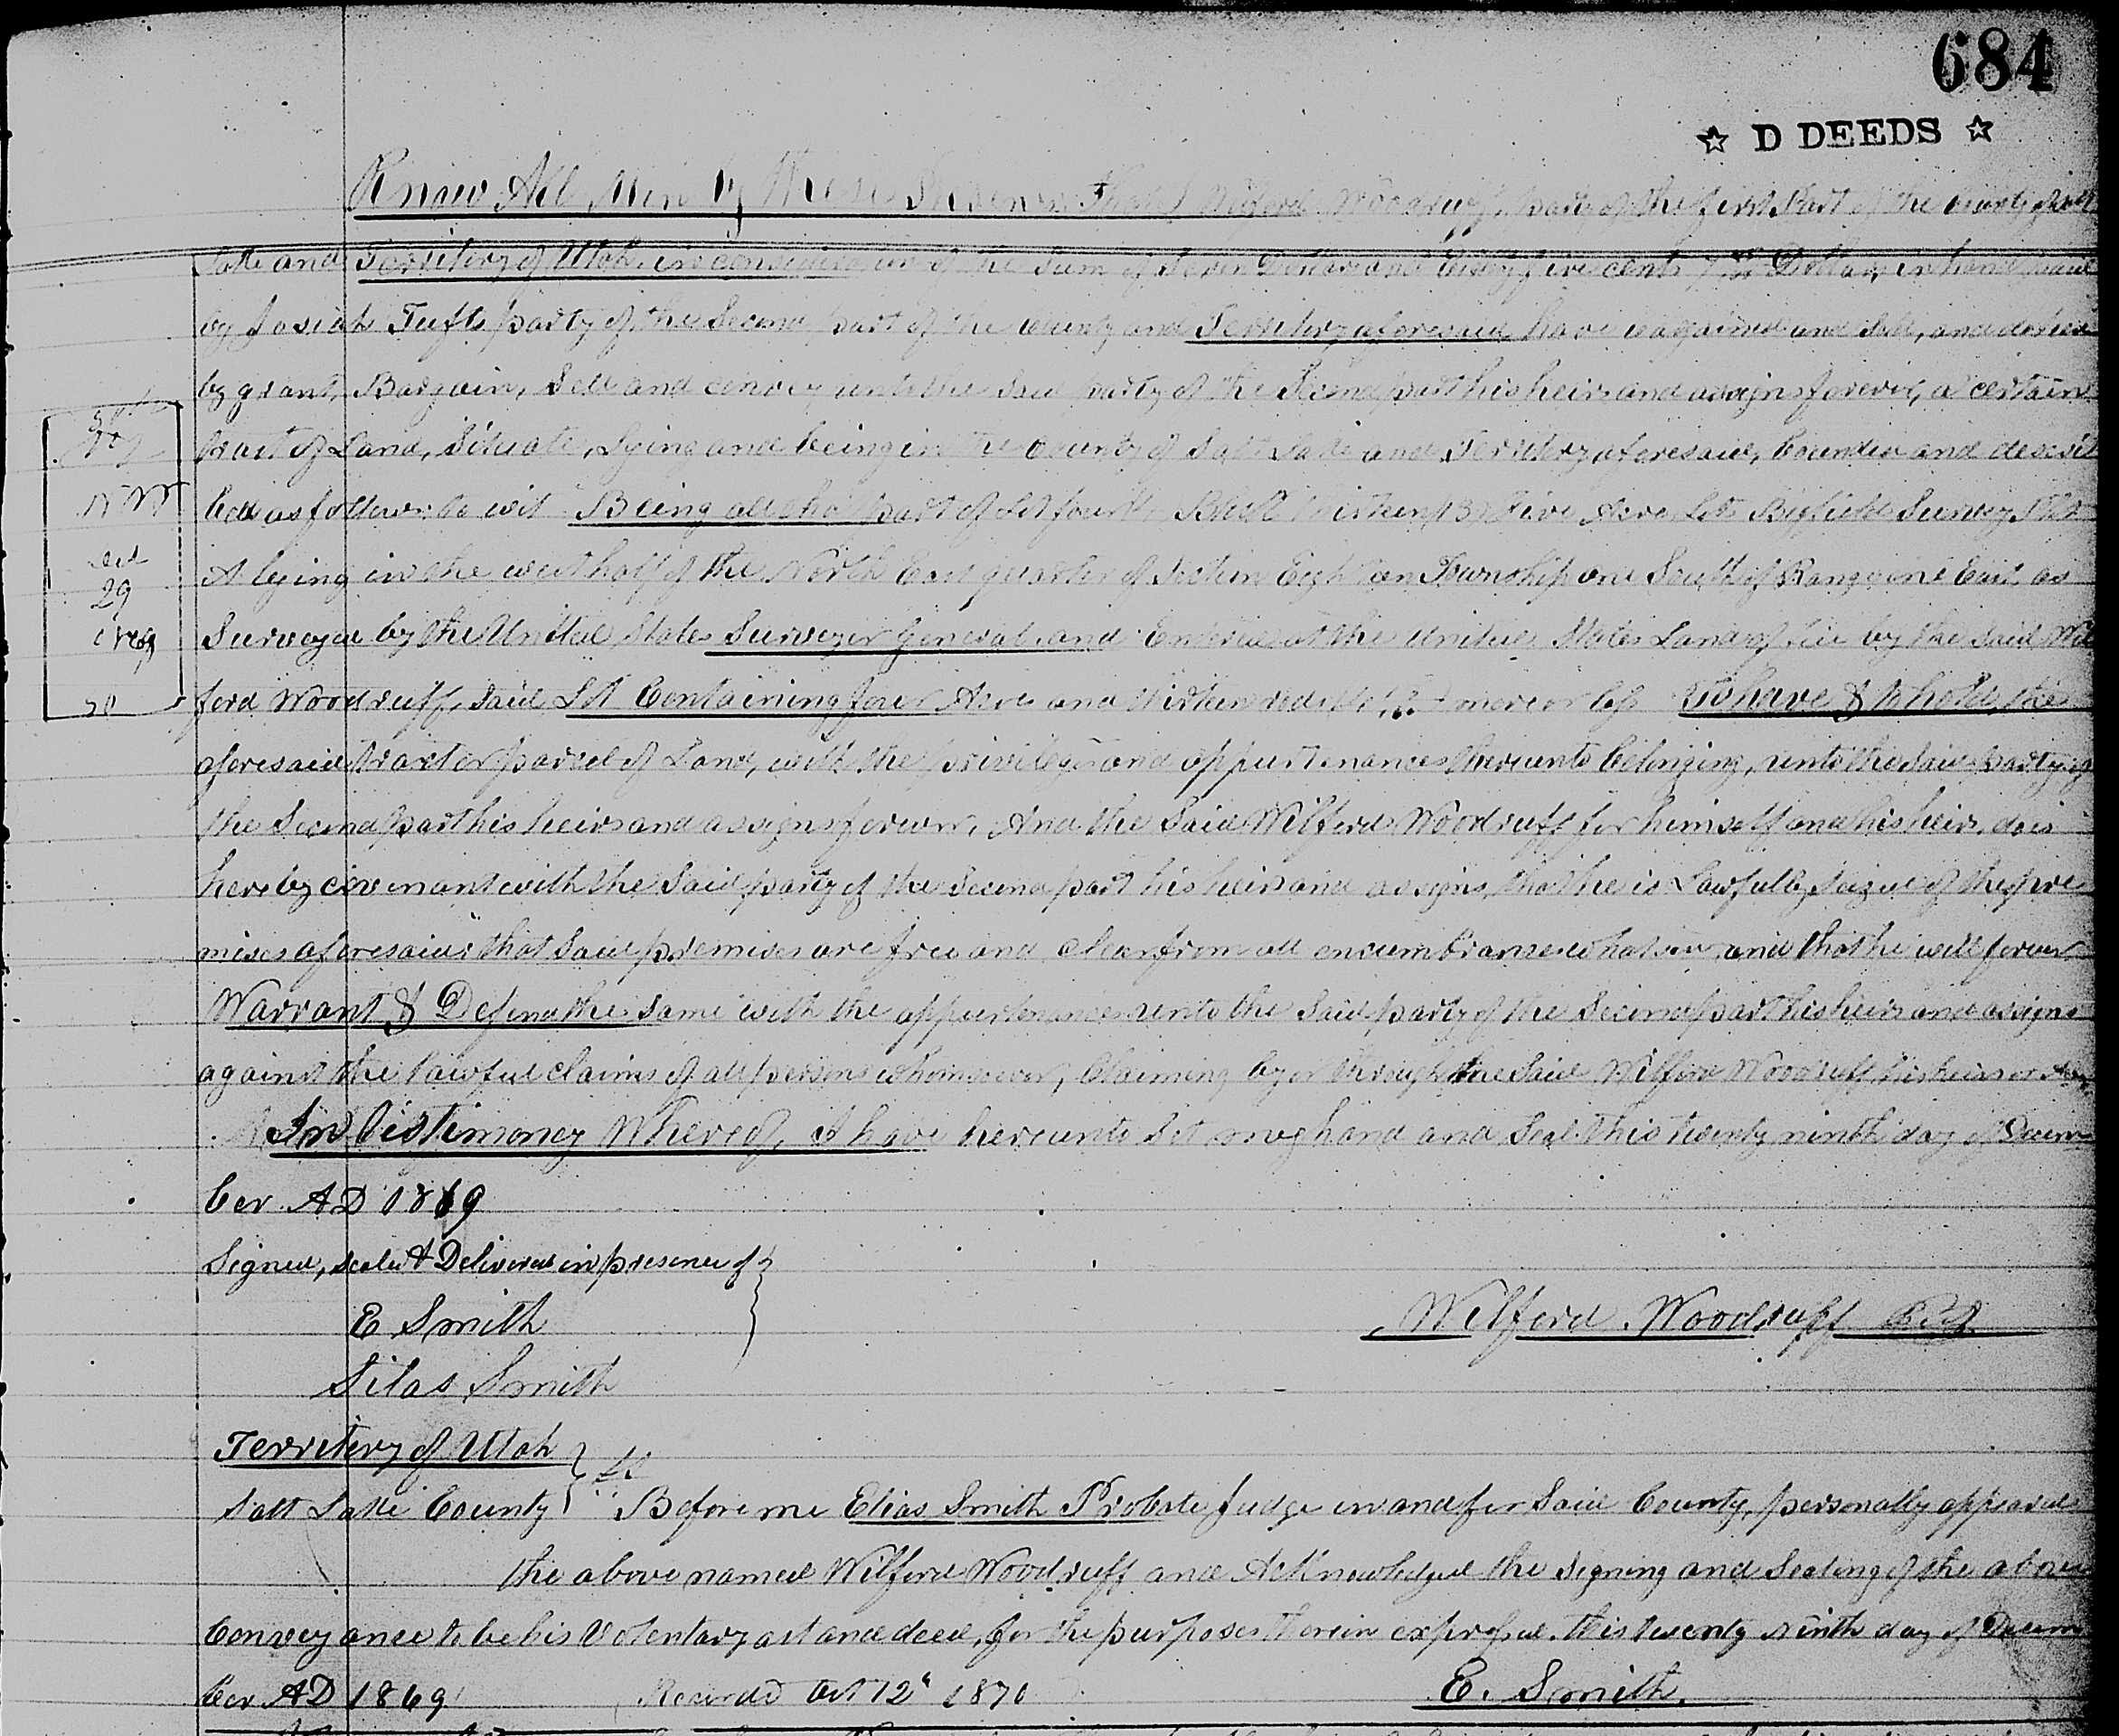 684
☆ D DEEDS ☆
Know All Men by These Presents That I Wilford Woodruff, party of the first Part of the county of Salt
Lake and Territory of Utah, in consideration of the Sum of Seven Dollars and twenty five cents Dollars, in hand paid
by Josiah Tufts party of the Second part of the county and Territory aforesaid, have bargained and Sold, and do here
by grant, Bargain, Sell and convey unto the Said party of the Second part his heirs and assigns forever, a certain
tract of Land, Situate, Lying and being in the County of Salt Lake and Territory aforesaid, bounded and descri
bed as follows: to wit Being all that part of Lot four Block thirteen (13) Five Acre Lots Bigfield Survey Plat
A lying in the west half of the North East quarter of Section Eighteen Township one South of Range one East, as
Surveyed by the United States Surveyor General, and Entered at the United States Land office by the Said Wil
ford Woodruff, Said Lot Containing four Acres and thirteen rods more or less To have & to hold, the
aforesaid tract or parcel of Land, with the privileges and appurtenances thereunto belonging, unto the Said party of
the Second part his heirs and assigns forever. And the Said Wilford Woodruff for himself and his heirs, does
hereby covenant with the Said party of the Second part his heirs and assigns, that he is Lawfully Seized of the pre
mises aforesaid that Said premises are free and clear from all encumbrance whatsoever and that he will forever
Warrant & Defend the Same with the appurtenances unto the Said party of the Second part his heirs and assigns
against the Lawful claims of all persons whomsoever, Claiming by or through the Said Wilford Woodruff, his heirs or
In Testimoney Whereof, I have hereunto Set my hand and Seal this twenty ninth day of Decem
ber AD 1869
Signed, sealed & Delivered in presence of
E Smith
Wilford Woodruff
Silas Smith
Territory of Utah
Salt Lake County } ss Before me Elias Smith Probate Judge in and for Said County, personally appeared
the above named Wilford Woodruff and Acknowledged the Signing and Sealing of the above
Conveyance to be his Volentary act and deed, for the purposes therein expressed. this twenty ninth day of Decem
ber AD 1869 Recorded Oct 12" 1870 E. Smith.
29